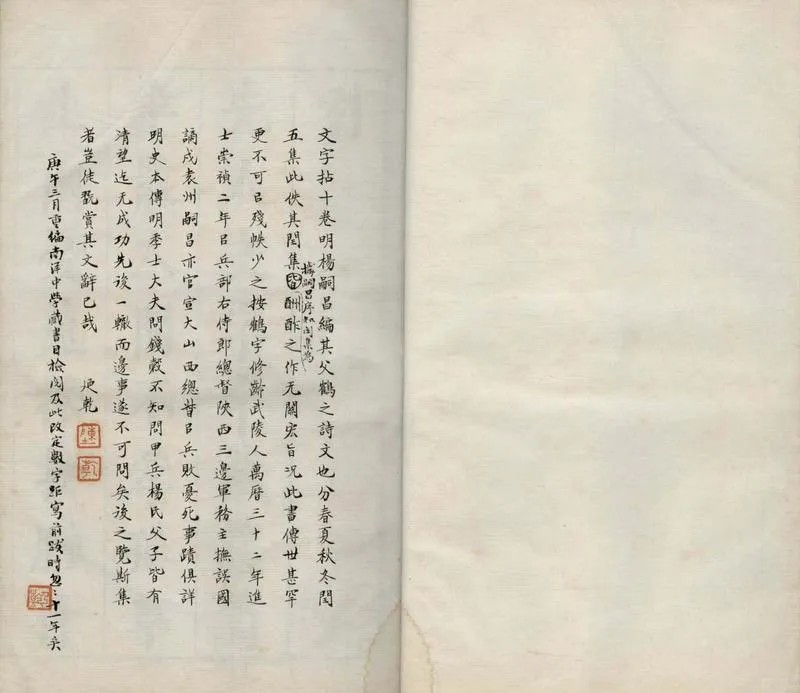 文字拈十卷明楊嗣昌編其父鶴之詩文也分春夏秋冬閏
五集此佚其閏集皆酬酢之作无關宏旨况此書傳世甚罕
據嗣昌序知閏集為
更不可㠯殘帙少之按鶴字修齡武陵人萬曆三十二年進
士崇禎二年㠯兵部右侍郎總督陝西三邊軍務主撫誤國
謫戍袁州嗣昌亦官宣大山西總督㠯兵敗憂死事蹟俱詳
明史本傳明季士大夫問錢穀不知問甲兵楊氏父子皆有
清望迄无成功先後一轍而邊事遂不可問矣後之覽斯集
者豈徒翫賞其文辭已哉
乾
陳
乾
庚午三月重編南洋中學藏書目檢閱及此改定數字距寫前跋時忽忽十一年矣